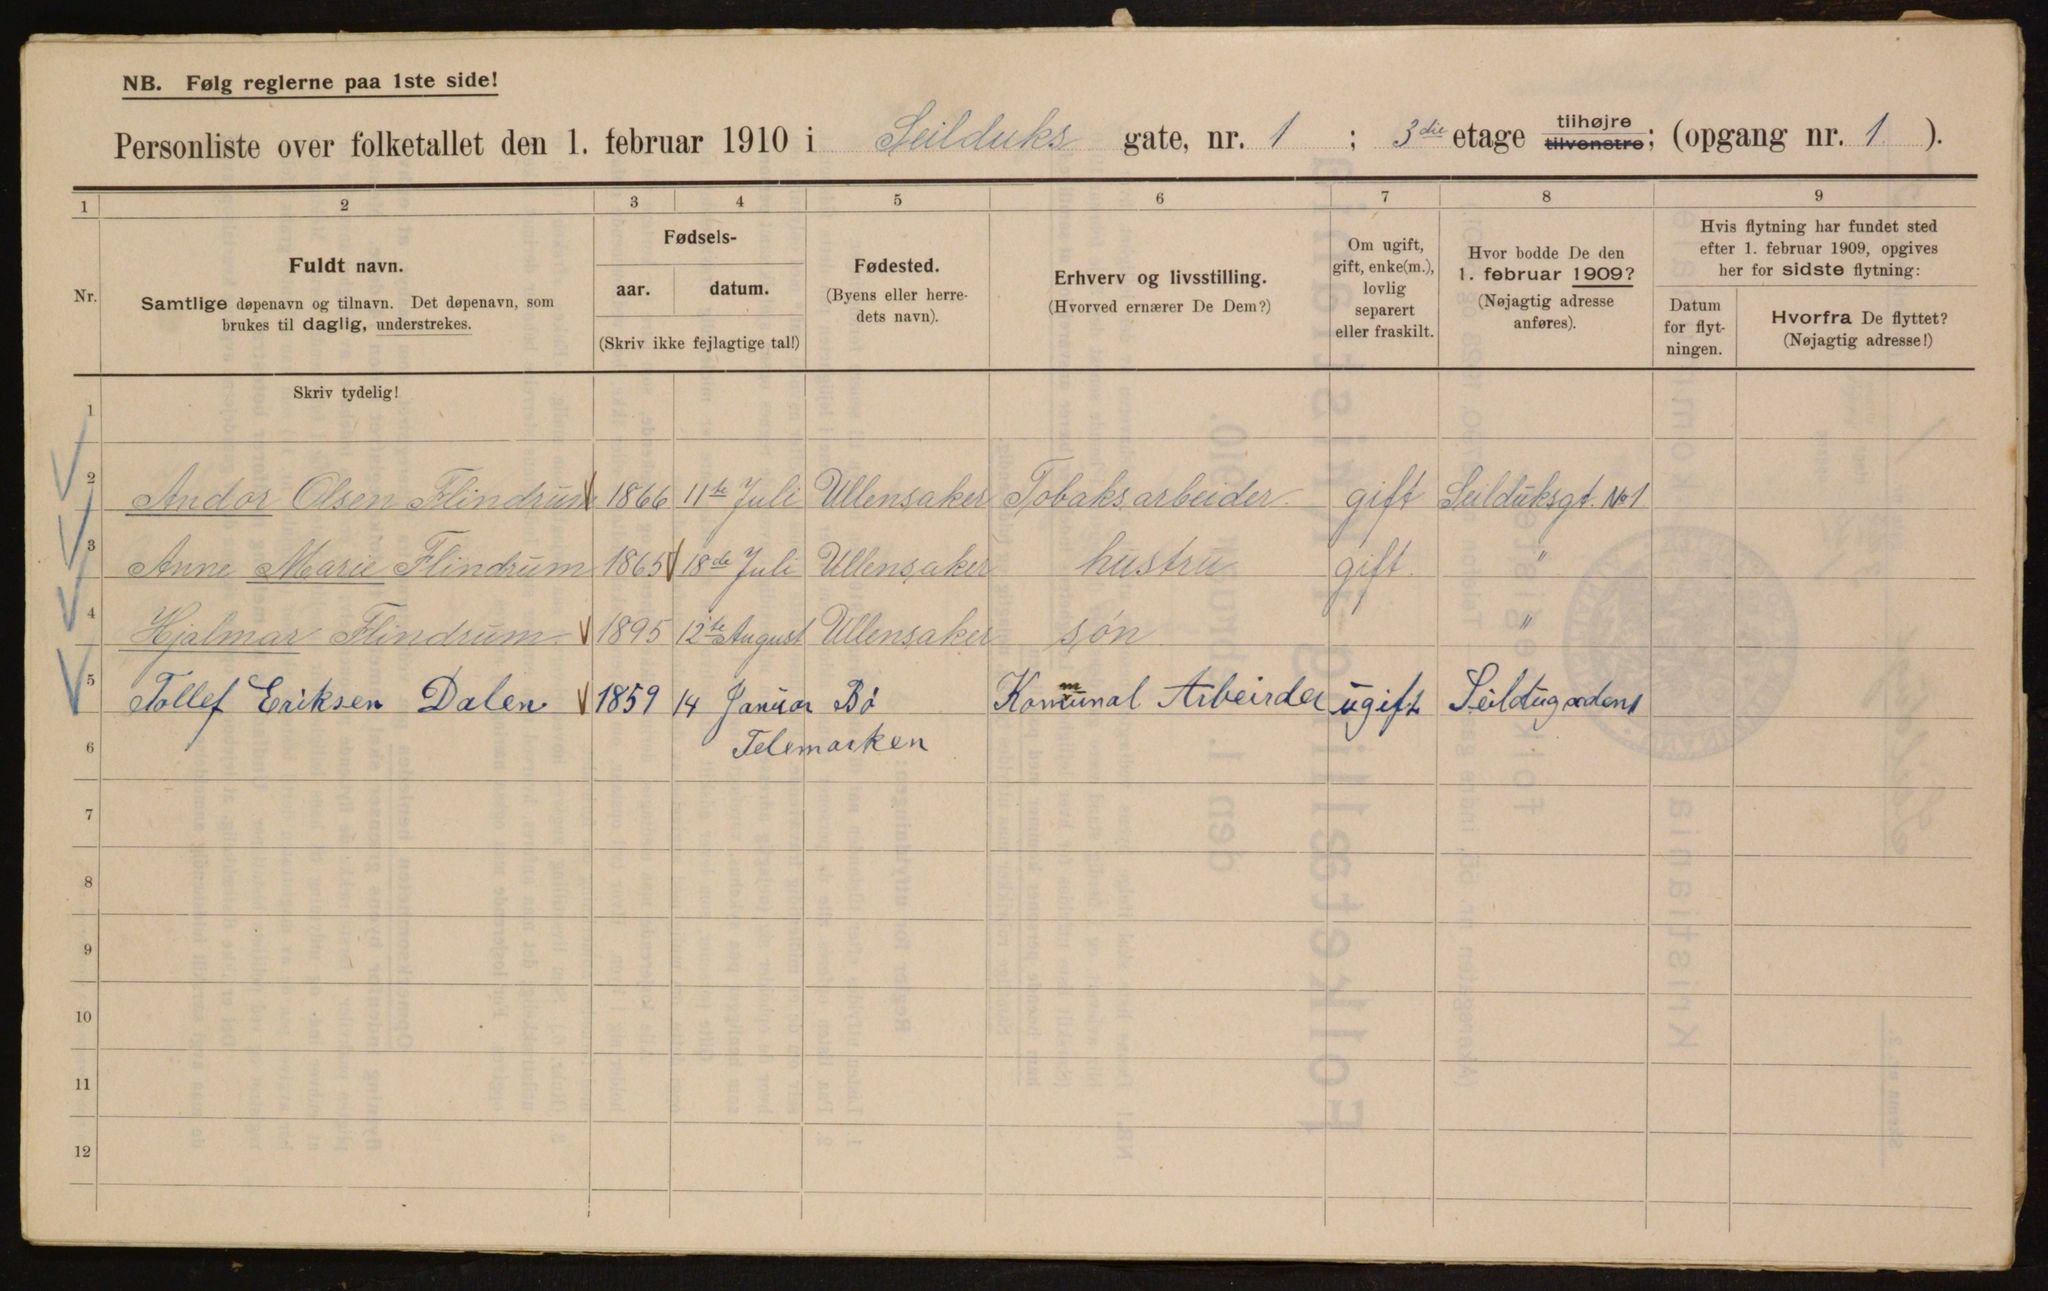 NB. Følg reglerne paa 1ste side!
Personliste over folketallet den 1. februar 1910 i Seilduks gate, nr. 1 ; 3die etage tilhøjre tilvenstre; (opgang nr. 1 ).
1 2 3 4 5 6 7 8 9
Nr.
Fuldt navn.
Samtlige døpenavn og tilnavn. Det døpenavn, som
brukes til daglig, understrekes.
Fødsels-
aar. datum.
(Skriv ikke fejlagtige tal!)
Fødested.
(Byens eller herre-
dets navn).
Erhverv og livsstilling.
(Hvorved ernærer De Dem?)
Om ugift,
gift, enke(m.),
lovlig
separert
eller fraskilt.
Hvor bodde De den
1. februar 1909?
(Nøjagtig adresse
anføres).
Hvis flytning har fundet sted
efter 1. februar 1909, opgives
her for sidste flytning:
Datum
for flyt-
ningen.
Hvorfra De flyttet?
(Nøjagtig adresse!)
Skriv tydelig!
1
2 Andor Olsen Flindrum 1866 11te Juli Ullensaker Tobaksarbeider gift Seilduksgt. No 1
3 Anne Marie Flindrum 1865 18de Juli Ullensaker hustru gift "
4 Hjalmar Flindrum 1895 12te August Ullensaker søn "
5 Tollef Eriksen Dalen 1859 14 Januar Bø Komunal Arbeirder ugift
6 Telemarken
7
8
9
10
11
12